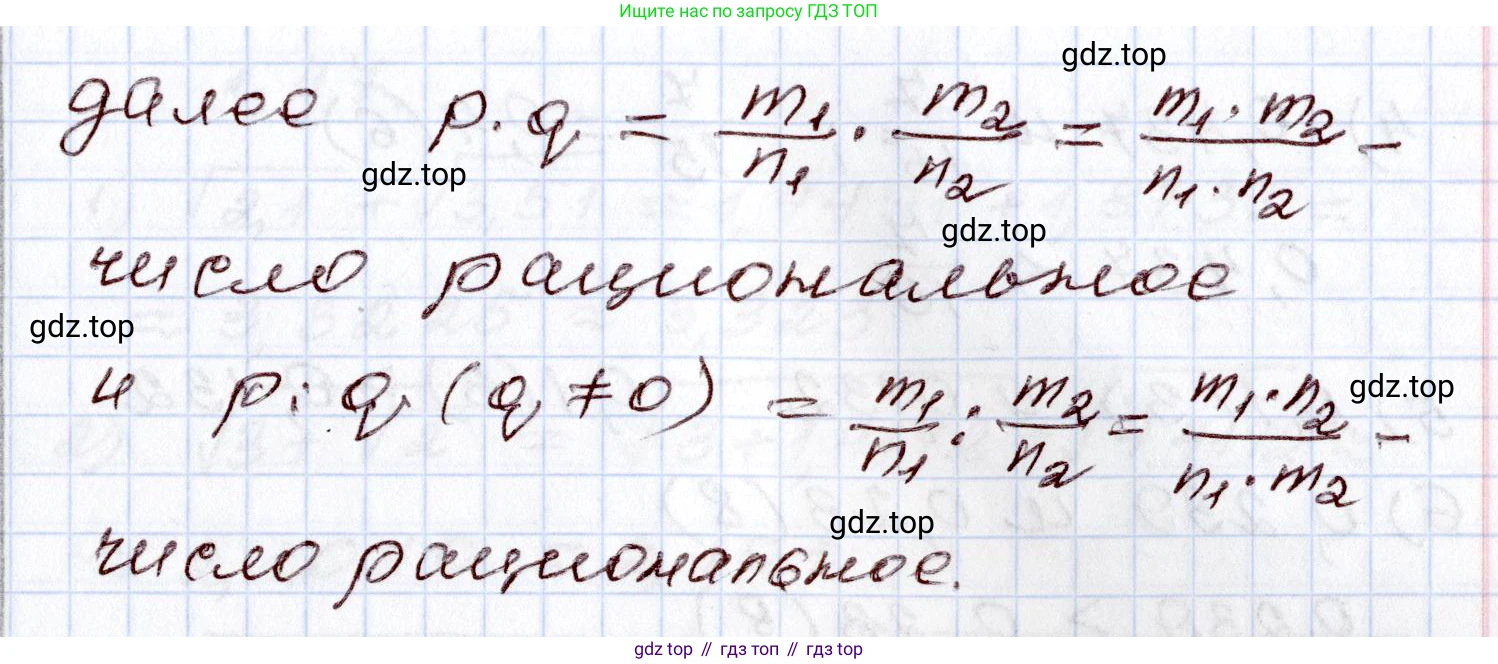 Ищите нас по запросу ГДЗ ТОП
gdz.top
далее p · q = m₁/n₁ · m₂/n₂ = m₁ · m₂/n₁ · n₂ –
gdz.top
gdz.top
число рациональное
gdz.top
и p : q (q ≠ 0) = m₁/n₁ : m₂/n₂ = m₁ · n₂/n₁ · m₂ –
gdz.top
gdz.top
число рациональное.
gdz top // гдз топ // гдз top